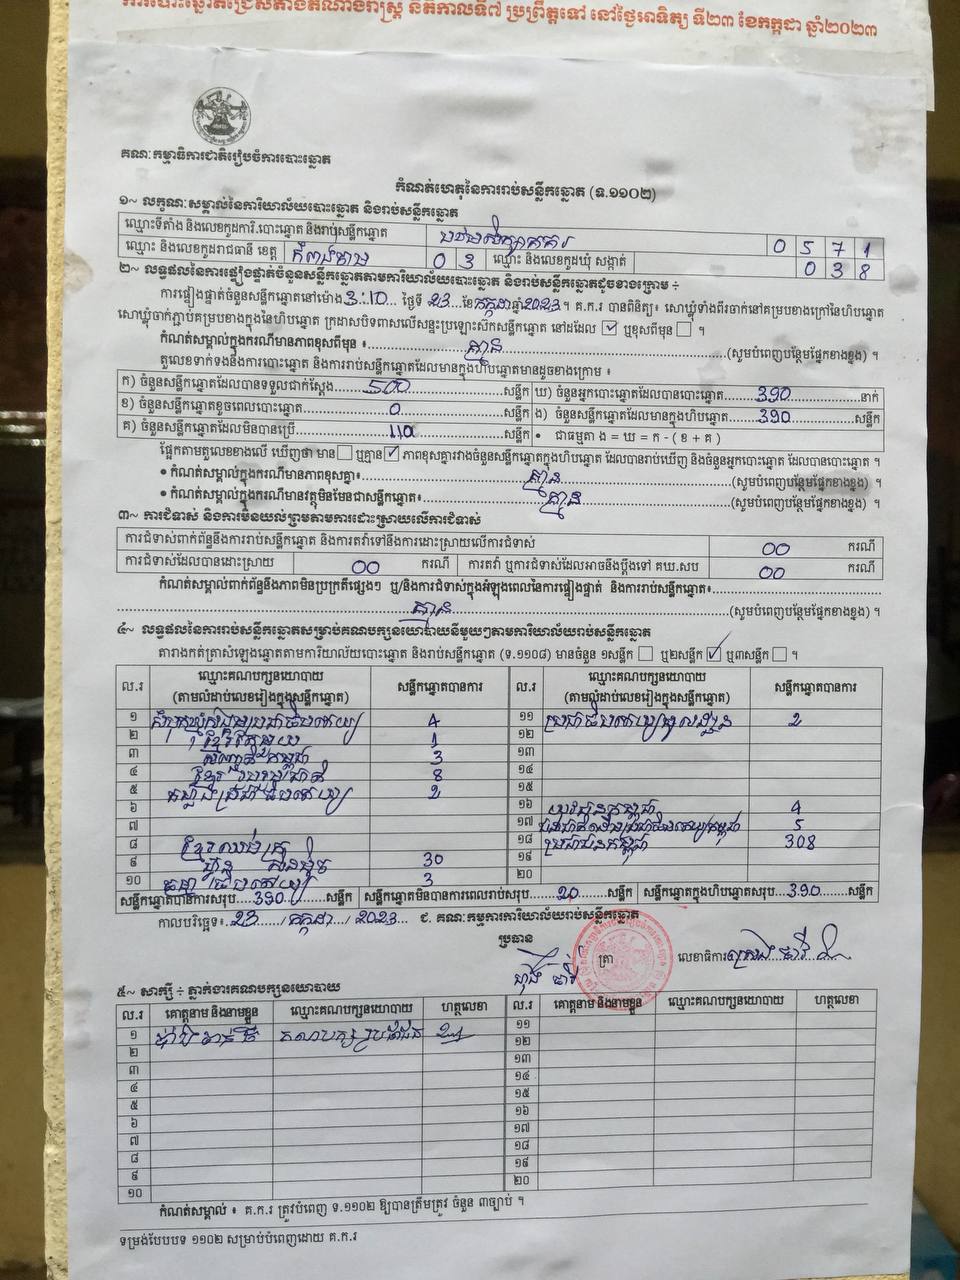 ការបោះឆ្នោតជ្រើសតាំងតំណាងរាស្ត្រ នីតិកាលទី៧ ប្រព្រឹត្តទៅ នៅថ្ងៃអាទិត្យ ទី២៣ ខែកក្កដា ឆ្នាំ២០២៣
គណៈកម្មាធិការជាតិរៀបចំការបោះឆ្នោត
កំណត់ហេតុនៃការរាប់សន្លឹកឆ្នោត (ទ.១១០២)
១~ លក្ខណៈសម្គាល់នៃការិយាល័យបោះឆ្នោត និងរាប់សន្លឹកឆ្នោត
ឈ្មោះទីតាំង និងលេខកូដការិ.បោះឆ្នោត និងរាប់សន្លឹកឆ្នោត 0 5 7 1
ឈ្មោះ និងលេខកូដរាជធានី ខេត្ត កំពង់ចាម 0 3 ឈ្មោះ និងលេខកូដឃុំ សង្កាត់ 0 3 8
២~ លទ្ធផលនៃការផ្ទៀងផ្ទាត់ចំនួនសន្លឹកឆ្នោតតាមការិយាល័យបោះឆ្នោត និងរាប់សន្លឹកឆ្នោតដូចខាងក្រោម ÷
ការផ្ទៀងផ្ទាត់ចំនួនសន្លឹកឆ្នោតនៅម៉ោង 3:10 ថ្ងៃទី 23 ខែ កក្កដា ឆ្នាំ 2023 ។ គ.ក.រ បានពិនិត្យ៖ សោឃ្មុំទាំងពីរចាក់នៅគម្របខាងក្រៅនៃហិបឆ្នោត
សោឃ្មុំចាក់ភ្ជាប់គម្របខាងក្នុងនៃហិបឆ្នោត ក្រដាសបិទពាសលើសន្ទះប្រឡោះស៊កសន្លឹកឆ្នោត នៅដដែល ✓ ឬខុសពីមុន ។
កំណត់សម្គាល់ក្នុងករណីមានភាពខុសពីមុន ៖ គ្មាន (សូមបំពេញបន្ថែមផ្នែកខាងខ្នង) ។
តួលេខទាក់ទងនឹងការបោះឆ្នោត និងការរាប់សន្លឹកឆ្នោតដែលមានក្នុងហិបឆ្នោតមានដូចខាងក្រោម ៖
ក) ចំនួនសន្លឹកឆ្នោតដែលបានទទួលជាក់ស្តែង 500 សន្លឹក ឃ) ចំនួនអ្នកបោះឆ្នោតដែលបានបោះឆ្នោត 390 នាក់
ខ) ចំនួនសន្លឹកឆ្នោតខូចពេលបោះឆ្នោត 0 សន្លឹក ង) ចំនួនសន្លឹកឆ្នោតដែលមានក្នុងហិបឆ្នោត 390 សន្លឹក
គ) ចំនួនសន្លឹកឆ្នោតដែលមិនបានប្រើ 110 សន្លឹក • ជាធម្មតា ង = ឃ = ក - ( ខ + គ )
ផ្អែកតាមតួលេខខាងលើ ឃើញថា មាន ឬគ្មាន ✓ ភាពខុសគ្នារវាងចំនួនសន្លឹកឆ្នោតក្នុងហិបឆ្នោត ដែលបានរាប់ឃើញ និងចំនួនអ្នកបោះឆ្នោត ដែលបានបោះឆ្នោត ។
• កំណត់សម្គាល់ក្នុងករណីមានភាពខុសគ្នា៖ គ្មាន (សូមបំពេញបន្ថែមផ្នែកខាងខ្នង) ។
• កំណត់សម្គាល់ក្នុងករណីមានវត្ថុមិនមែនជាសន្លឹកឆ្នោត៖ គ្មាន (សូមបំពេញបន្ថែមផ្នែកខាងខ្នង) ។
៣~ ការជំទាស់ និងការមិនយល់ព្រមតាមការដោះស្រាយលើការជំទាស់
ការជំទាស់ពាក់ព័ន្ធនឹងការរាប់សន្លឹកឆ្នោត និងការតវ៉ាទៅនឹងការដោះស្រាយលើការជំទាស់ 00 ករណី
ការជំទាស់ដែលបានដោះស្រាយ 00 ករណី ការតវ៉ា ឬការជំទាស់ដែលអាចនឹងប្តឹងទៅ គឃ.សប 00 ករណី
កំណត់សម្គាល់ពាក់ព័ន្ធនឹងភាពមិនប្រក្រតីផ្សេងៗ ឬ/និងការជំទាស់ក្នុងអំឡុងពេលនៃការផ្ទៀងផ្ទាត់ និងការរាប់សន្លឹកឆ្នោត៖
គ្មាន (សូមបំពេញបន្ថែមផ្នែកខាងខ្នង) ។
៤~ លទ្ធផលនៃការរាប់សន្លឹកឆ្នោតសម្រាប់គណបក្សនយោបាយនីមួយៗតាមការិយាល័យរាប់សន្លឹកឆ្នោត
តារាងកត់ត្រាសំឡេងឆ្នោតតាមការិយាល័យបោះឆ្នោត និងរាប់សន្លឹកឆ្នោត (ទ.១១០៨) មានចំនួន ១សន្លឹក ឬ២សន្លឹក ✓ ឬ៣សន្លឹក ។
ល.រ ឈ្មោះគណបក្សនយោបាយ (តាមលំដាប់លេខរៀងក្នុងសន្លឹកឆ្នោត) សន្លឹកឆ្នោតបានការ ល.រ ឈ្មោះគណបក្សនយោបាយ (តាមលំដាប់លេខរៀងក្នុងសន្លឹកឆ្នោត) សន្លឹកឆ្នោតបានការ
១ សំបុកឃ្មុំសង្គមប្រជាធិបតេយ្យ 4 ១១ 2
២ ខ្មែររួបរួម 1 ១២
៣ សញ្ជាតិកម្ពុជា 3 ១៣
៤ ខ្មែររួបរួមជាតិ 8 ១៤
៥ កម្លាំងប្រជាធិបតេយ្យ 2 ១៥
៦ ១៦ យុវជនកម្ពុជា 4
៧ ១៧ 5
៨ ១៨ ប្រជាជនកម្ពុជា 308
៩ ហ៊្វុនស៊ិនប៉ិច 30 ១៩
១០ ធម្មាធិបតេយ្យ 3 ២០
សន្លឹកឆ្នោតបានការសរុប 390 សន្លឹក សន្លឹកឆ្នោតមិនបានការពេលរាប់សរុប 20 សន្លឹក សន្លឹកឆ្នោតក្នុងហិបឆ្នោតសរុប 390 សន្លឹក
កាលបរិច្ឆេទ៖ 23 / កក្កដា / 2023 ជ. គណៈកម្មការការិយាល័យរាប់សន្លឹកឆ្នោត
ប្រធាន
ត្រា
លេខាធិការ
៥~ សាក្សី ÷ ភ្នាក់ងារគណបក្សនយោបាយ
ល.រ គោត្តនាម និងនាមខ្លួន ឈ្មោះគណបក្សនយោបាយ ហត្ថលេខា ល.រ គោត្តនាម និងនាមខ្លួន ឈ្មោះគណបក្សនយោបាយ ហត្ថលេខា
១ គណបក្សប្រជាជន ១១
២ ១២
៣ ១៣
៤ ១៤
៥ ១៥
៦ ១៦
៧ ១៧
៨ ១៨
៩ ១៩
១០ ២០
កំណត់សម្គាល់ ៖ គ.ក.រ ត្រូវបំពេញ ទ.១១០២ ឱ្យបានត្រឹមត្រូវ ចំនួន ៣ច្បាប់ ។
ទម្រង់បែបបទ ១១០២ សម្រាប់បំពេញដោយ គ.ក.រ